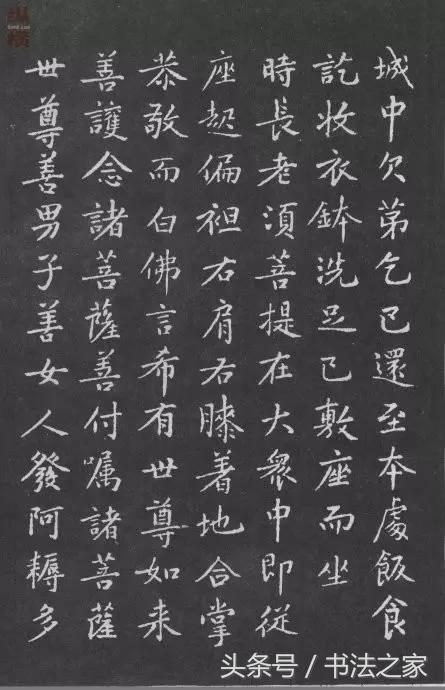 城中次第乞已還至本處飯食
訖收衣鉢洗足已敷座而坐
時長老須菩提在大衆中即從
座起偏袒右肩右膝著地合掌
恭敬而白佛言希有世尊如来
善護念諸菩薩善付嘱諸菩薩
世尊善男子善女人發阿耨多
纵横
头条号 / 书法之家